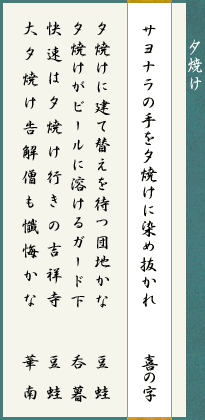 夕焼け
サヨナラの手を夕焼けに染め抜かれ 喜の字
夕焼けに建て替えを待つ団地かな 豆蛙
夕焼けがビールに溶けるガード下 呑暮
快速は夕焼け行きの吉祥寺 豆蛙
大夕焼け告解僧も懺悔かな 華南